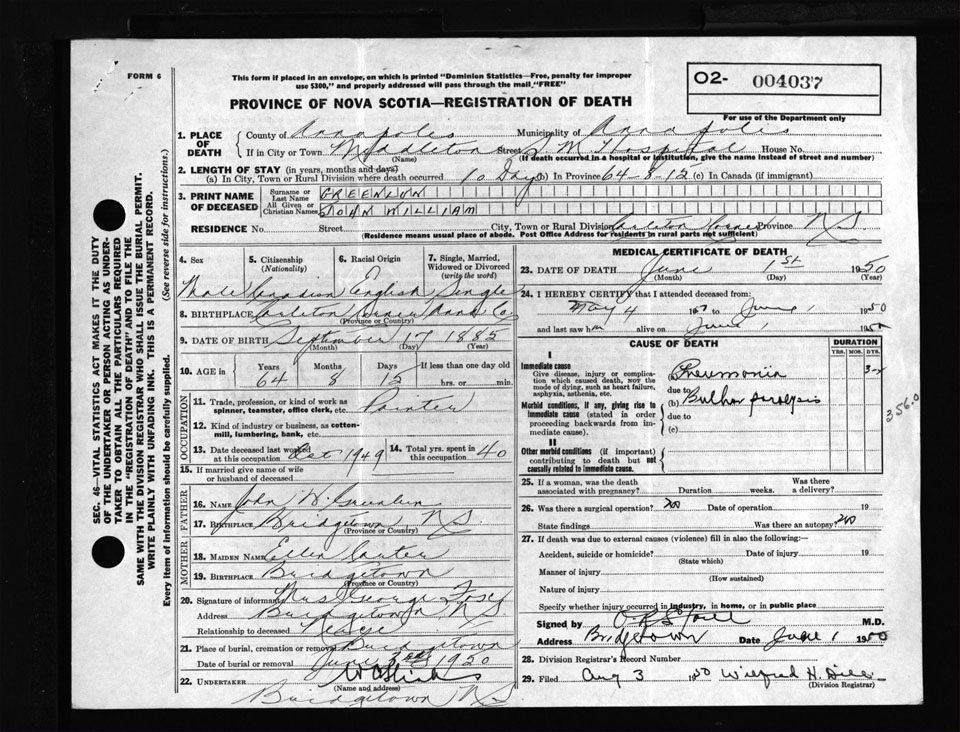 FORM 6
This form if placed in an envelope, on which is printed "Dominion Statistics—Free, penalty for improper
use $300," and properly addressed will pass through the mail "FREE"
PROVINCE OF NOVA SCOTIA—REGISTRATION OF DEATH
O2- 004037
For use of the Department only
1. PLACE OF DEATH County of Annapolis Municipality of Annapolis
If in City or Town Middleton Street S. M. Hospital House No.
(Name) (If death occurred in a hospital or institution, give the name instead of street and number)
2. LENGTH OF STAY (in years, months and days)
(a) In City, Town or Rural Division where death occurred 10 Days (b) In Province 64-8-12 (c) In Canada (if immigrant)
3. PRINT NAME OF DECEASED Surname or Last Name GREENLUN
All Given or Christian Names JOHN WILLIAM
RESIDENCE No. Street City, Town or Rural Division Carleton Corner Province N.S.
(Residence means usual place of abode. Post Office Address for residents in rural parts not sufficient)
4. Sex 5. Citizenship (Nationality) 6. Racial Origin 7. Single, Married, Widowed or Divorced (write the word)
Male Canadian English Single
8. BIRTHPLACE Carleton Corner Anna Co
(Province or Country)
9. DATE OF BIRTH September 17 1885
(Month) (Day) (Year)
10. AGE in Years Months Days If less than one day old
64 8 12 hrs. or min.
OCCUPATION
11. Trade, profession, or kind of work as spinner, teamster, office clerk, etc. Painter
12. Kind of industry or business, as cotton-mill, lumbering, bank, etc.
13. Date deceased last worked at this occupation Oct 1949 14. Total yrs. spent in this occupation 40
15. If married give name of wife or husband of deceased
FATHER
16. Name John H. Greenlun
17. Birthplace Bridgetown N.S.
(Province or Country)
MOTHER
18. Maiden Name Ellen Carter
19. Birthplace Bridgetown
(Province or Country)
20. Signature of informant Mrs George Fosey
Address Bridgetown N.S.
Relationship to deceased
21. Place of burial, cremation or removal Bridgetown
Date of burial or removal June 3rd 1950
22. UNDERTAKER
(Name and address)
Bridgetown N.S.
MEDICAL CERTIFICATE OF DEATH
23. DATE OF DEATH June 1st 1950
(Month) (Day) (Year)
24. I HEREBY CERTIFY that I attended deceased from
May 4 to June 1950
and last saw him alive on June 1 1950
CAUSE OF DEATH DURATION
YRS. MOS. DYS.
I
Immediate cause
Give disease, injury or complication which caused death, NOT the mode of dying, such as heart failure, asphyxia, asthenia, etc.
(a) Pneumonia
due to
Morbid conditions, if any, giving rise to immediate cause (stated in order proceeding backwards from immediate cause).
(b) Bulbar paralysis
due to
(c)
II
Other morbid conditions (if important) contributing to death but not causally related to immediate cause.
356.0
25. If a woman, was the death associated with pregnancy? Duration weeks. Was there a delivery?
26. Was there a surgical operation? no Date of operation 19
State findings Was there an autopsy? no
27. If death was due to external causes (violence) fill in also the following:—
Accident, suicide or homicide? Date of injury 19
(State which)
Manner of injury
(How sustained)
Nature of injury
Specify whether injury occurred in industry, in home, or in public place
Signed by M.D.
Address Bridgetown Date June 1 1950
28. Division Registrar's Record Number
29. Filed Aug 3 1950 Wilfred H.
(Division Registrar)
SEC. 46—VITAL STATISTICS ACT MAKES IT THE DUTY
OF THE UNDERTAKER OR PERSON ACTING AS UNDER-
TAKER TO OBTAIN ALL THE PARTICULARS REQUIRED
IN THE "REGISTRATION OF DEATH" AND TO FILE THE
SAME WITH THE DIVISION REGISTRAR WHO SHALL ISSUE THE BURIAL PERMIT.
WRITE PLAINLY WITH UNFADING INK. THIS IS A PERMANENT RECORD.
Every item of information should be carefully supplied. (See reverse side for instructions.)